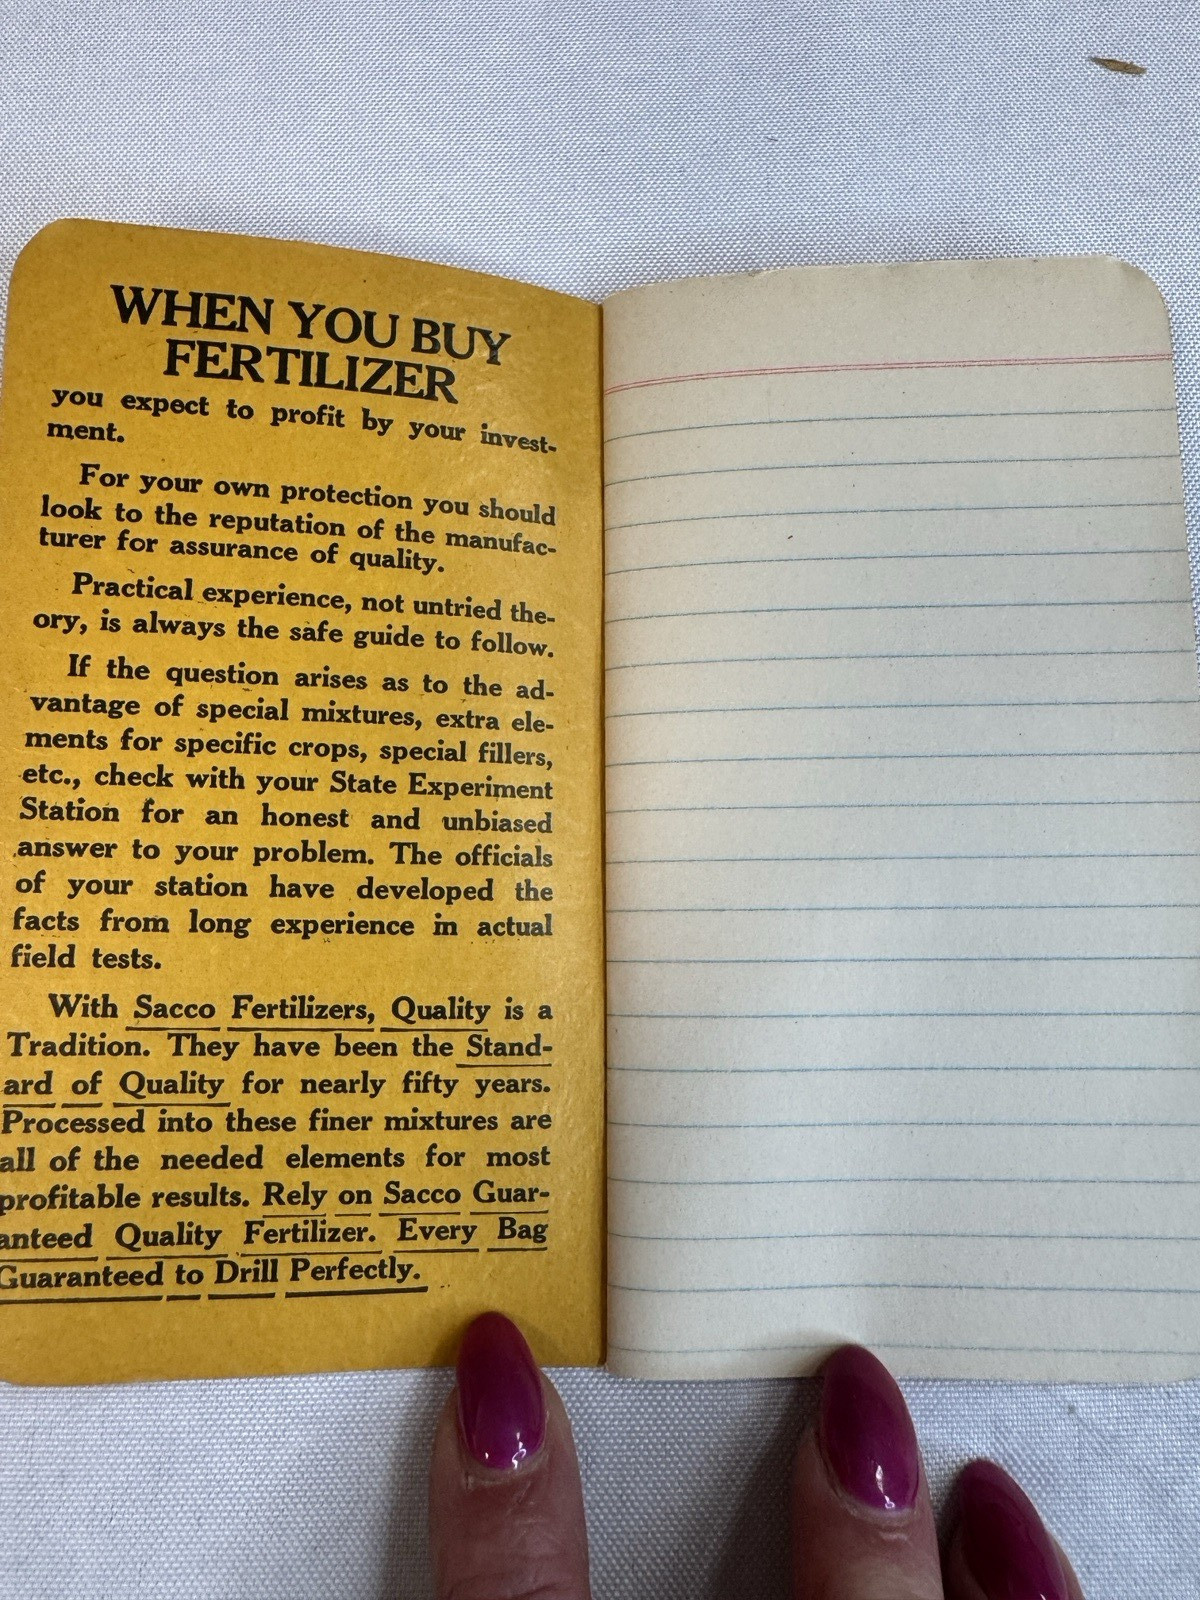 WHEN YOU BUY
FERTILIZER
you expect to profit by your invest-
ment.
For your own protection you should
look to the reputation of the manufac-
turer for assurance of quality.
Practical experience, not untried the-
ory, is always the safe guide to follow.
If the question arises as to the ad-
vantage of special mixtures, extra ele-
ments for specific crops, special fillers,
etc., check with your State Experiment
Station for an honest and unbiased
answer to your problem. The officials
of your station have developed the
facts from long experience in actual
field tests.
With Sacco Fertilizers, Quality is a
Tradition. They have been the Stand-
ard of Quality for nearly fifty years.
Processed into these finer mixtures are
all of the needed elements for most
profitable results. Rely on Sacco Guar-
anteed Quality Fertilizer. Every Bag
Guaranteed to Drill Perfectly.